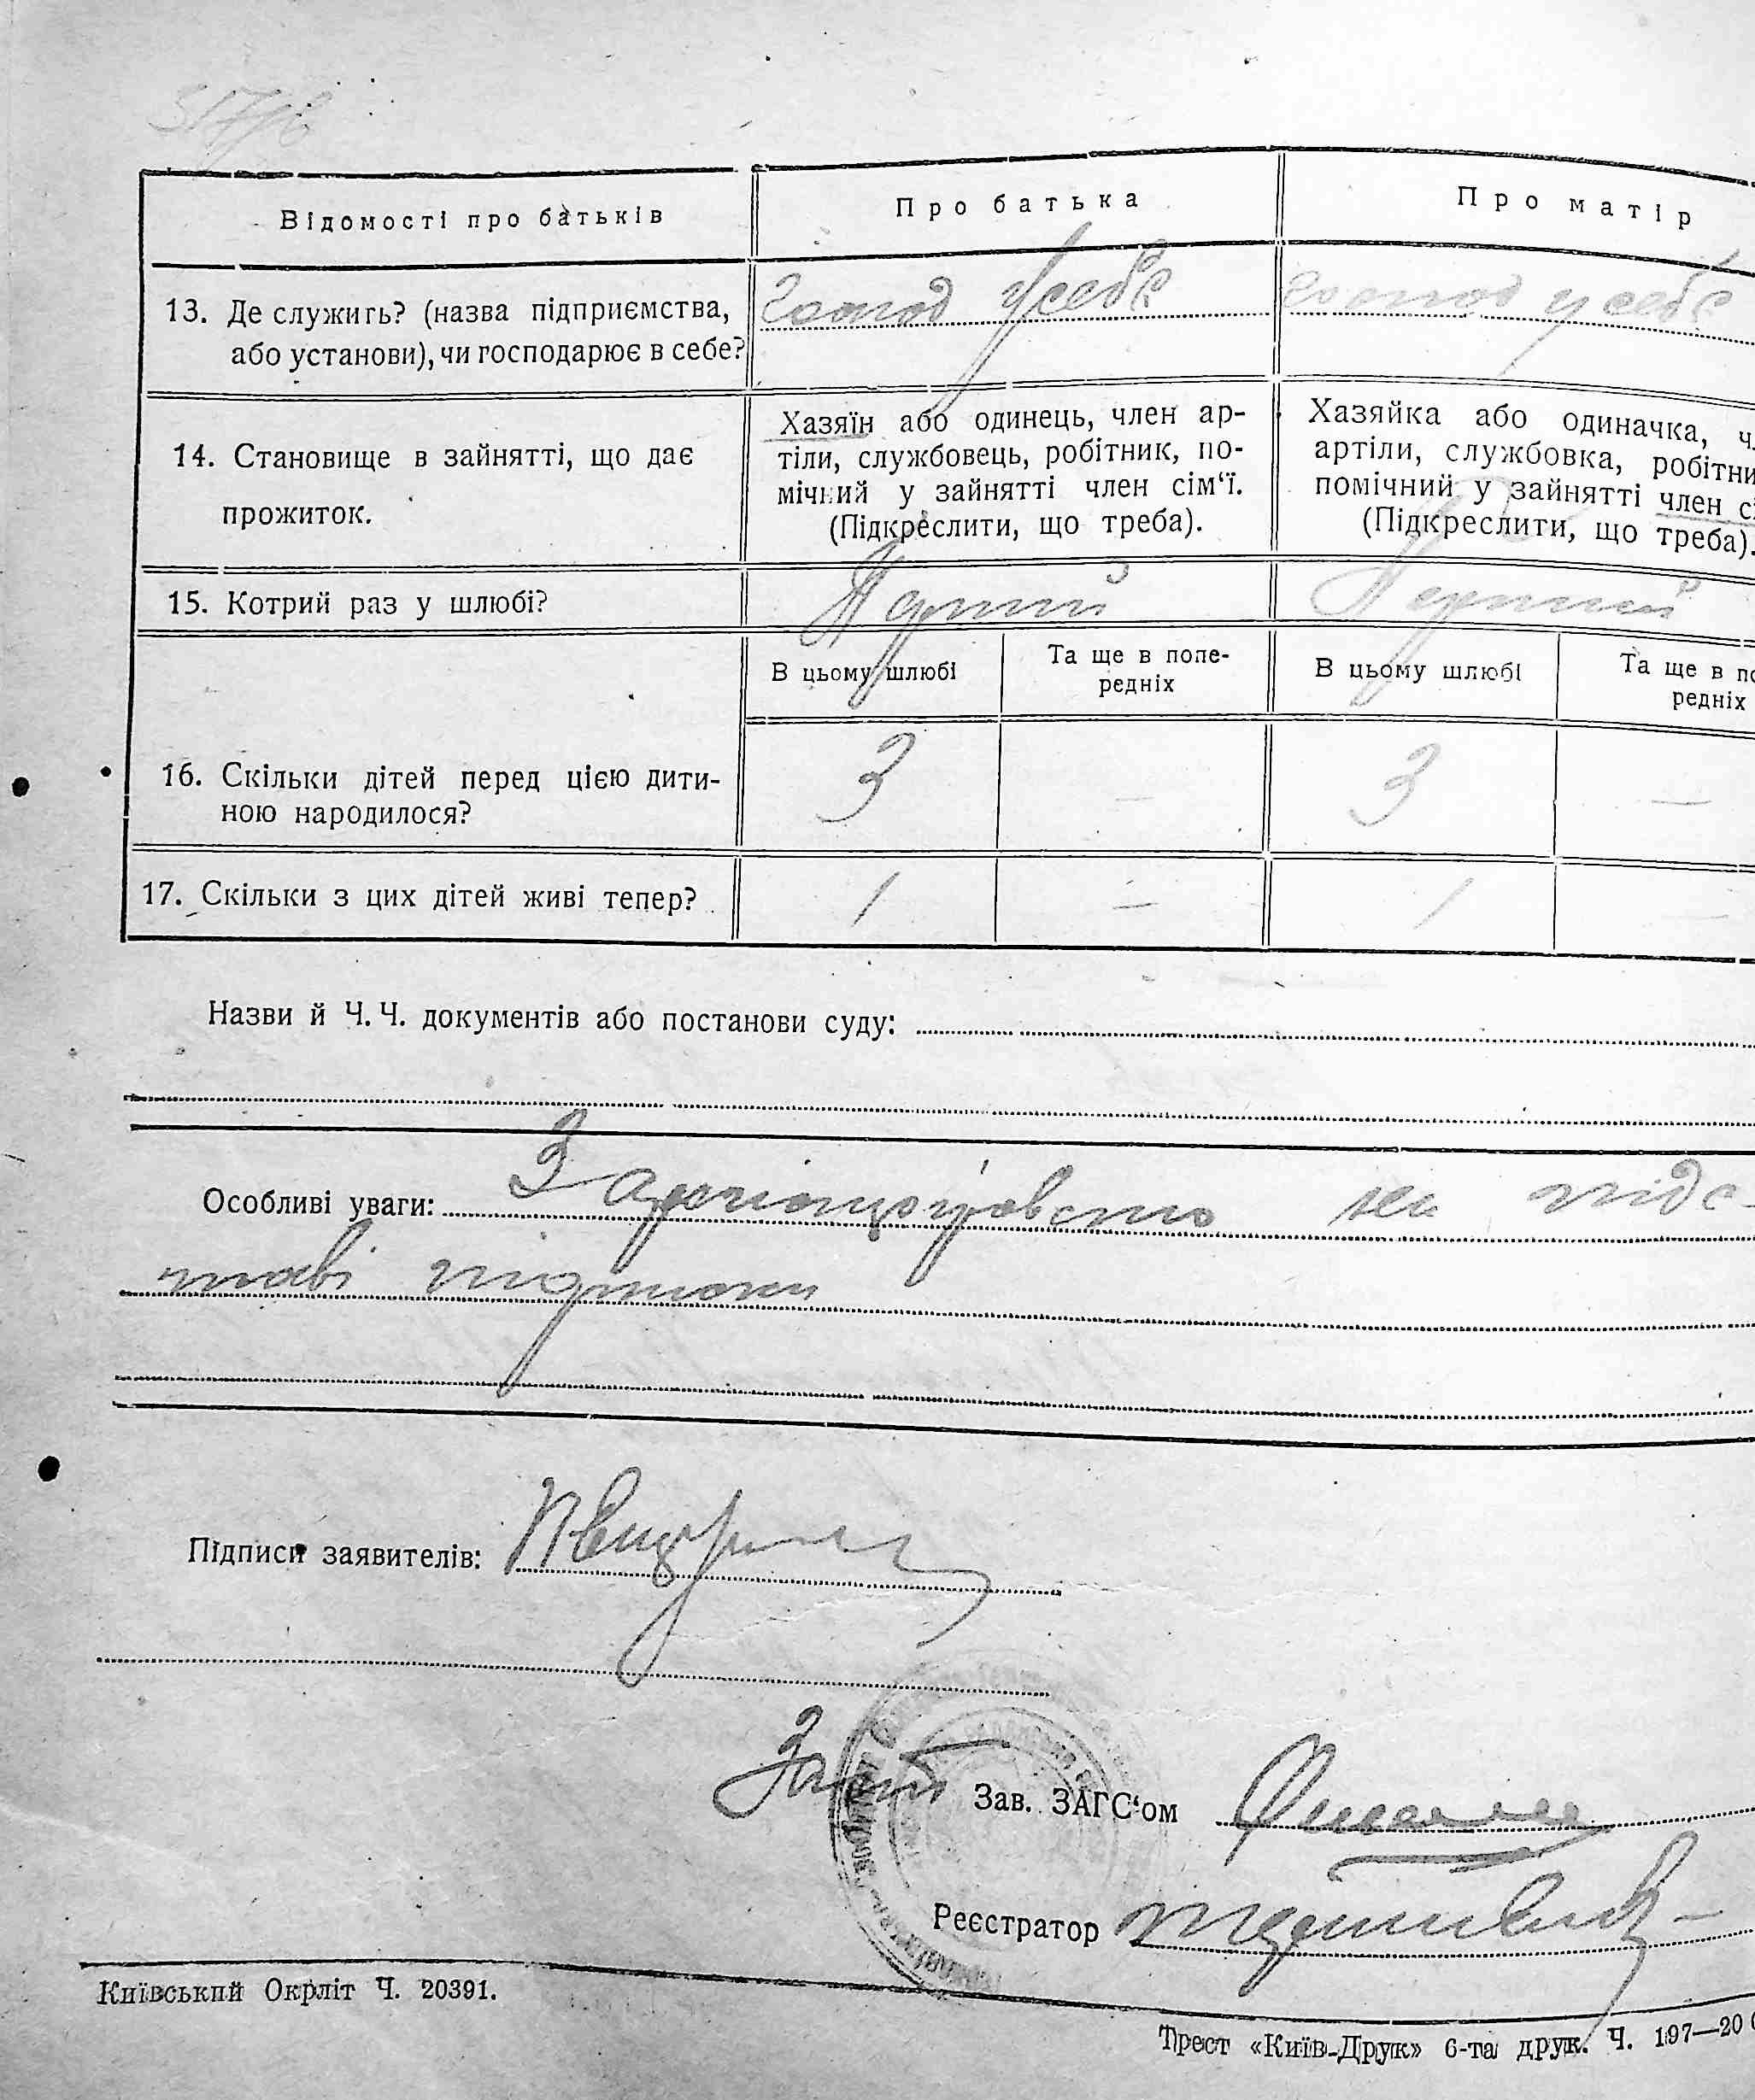 Відомості про батьків
Про батька
Про матір
13. Де служить? (назва підприємства,
або установи), чи господарює в себе?
господ у себе
господ у себе
14. Становище в зайнятті, що дає
прожиток.
Хазяїн або одинець, член ар-
тіли, службовець, робітник, по-
мічний у зайнятті член сім‘ї.
(Підкреслити, що треба).
Хазяйка або одиначка,
артіли, службовка,
помічний у зайнятті член
(Підкреслити, що треба).
15. Котрий раз у шлюбі?
Перший
Перший
В цьому шлюбі
Та ще в попе-
редніх
В цьому шлюбі
Та ще в
редніх
16. Скільки дітей перед цією дити-
ною народилося?
3
—
3
—
17. Скільки з цих дітей живі тепер?
1
—
1
—
Назви й Ч.Ч. документів або постанови суду:
Особливі уваги: Зареєстровано на підс-
таві
Підписи заявителів:
Зав. ЗАГС‘ом
Реєстратор
Київський Окрліт Ч. 20391.
Трест «Київ-Друк» 6-та друк. Ч. 197—20